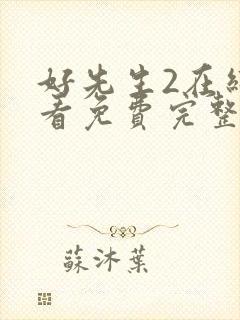 好先生2在线
看免费完整
蘇沐葉